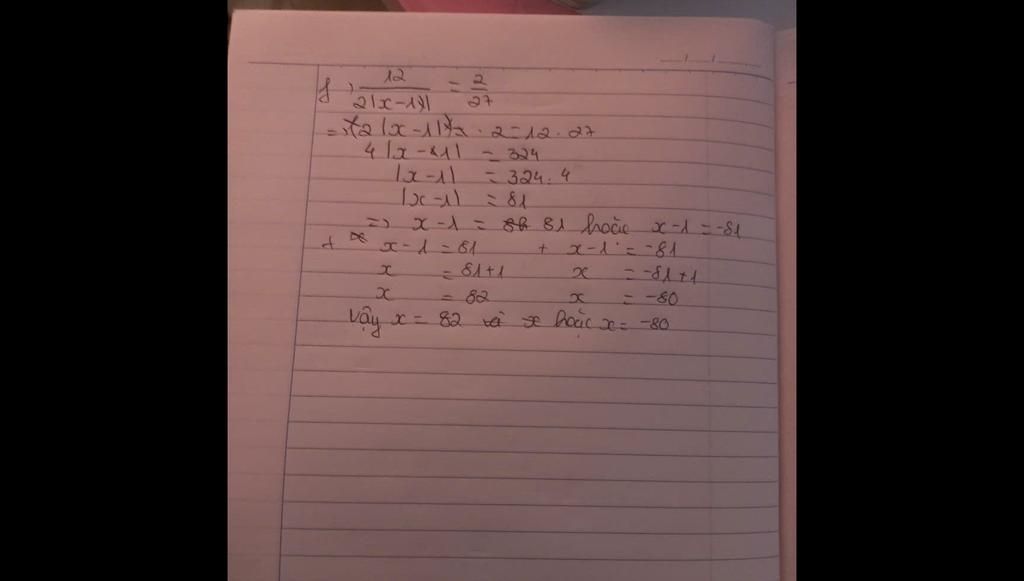 f, 12/2|x-1| = 2/27
=> 2|x-1| . 2 = 12 . 27
4|x-1| = 324
|x-1| = 324:4
|x-1| = 81
=> x-1 = 81 hoặc x-1 = -81
+ x-1 = 81 + x-1 = -81
x = 81+1 x = -81+1
x = 82 x = -80
Vậy x = 82 hoặc x = -80